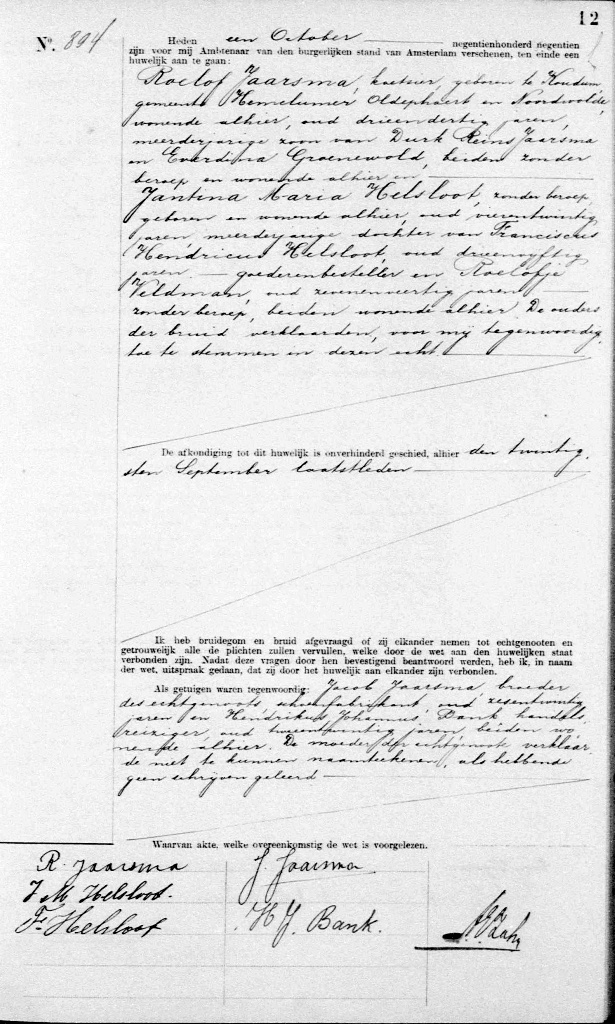 12
Nº. 894
Heden een October negentienhonderd negentien
zijn voor mij Ambtenaar van den burgerlijken stand van Amsterdam verschenen, ten einde een
huwelijk aan te gaan:
Roelof Jaarsma, koetsier, geboren te Koudum,
gemeente Hemelumer Oldephaert en Noordwolde,
wonende alhier, oud drieendertig jaren,
meerderjarige zoon van Durk Reins Jaarsma
en Everdina Groenewold, beiden zonder
beroep en wonende alhier en
Jantina Maria Helsloot, zonder beroep,
geboren en wonende alhier, oud vierentwintig
jaren, meerderjarige dochter van Franciscus
Hendricus Helsloot, oud drieenvyftig
jaren, goederenbesteller en Roelofje
Veldman, oud zevenenveertig jaren
zonder beroep, beiden wonende alhier. De ouders
der bruid verklaarden, voor mij tegenwoordig,
toe te stemmen in dezen echt
De afkondiging tot dit huwelijk is onverhinderd geschied, alhier den twintig
sten September laatstleden
Ik heb bruidegom en bruid afgevraagd of zij elkander nemen tot echtgenooten en
getrouwelijk alle de plichten zullen vervullen, welke door de wet aan den huwelijken staat
verbonden zijn. Nadat deze vragen door hen bevestigend beantwoord werden, heb ik, in naam
der wet, uitspraak gedaan, dat zij door het huwelijk aan elkander zijn verbonden.
Als getuigen waren tegenwoordig: Jacob Jaarsma, broeder
des echtgenoots, schoenfabrikant, oud zesentwintig
jaren en Hendrikus Johannes Bank, handels
reiziger, oud tweeentwintig jaren, beiden wo
nende alhier. De moeder der echtgenoote verklaar
de niet te kunnen naamteekenen, als hebbende
geen schrijven geleerd
Waarvan akte, welke overeenkomstig de wet is voorgelezen.
R. Jaarsma
J. Jaarsma
J M Helsloot.
F. Helsloot
H J. Bank.